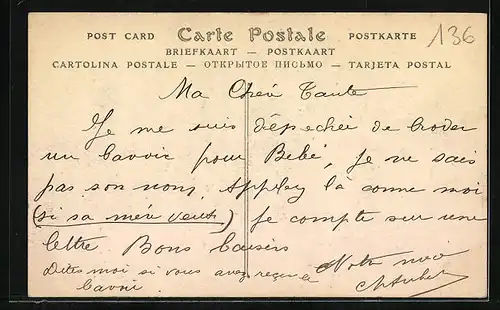 POST CARD Carte Postale POSTKARTE
136
BRIEFKAART — POSTKAART
CARTOLINA POSTALE — ОТКРЫТОЕ ПИСЬМО — TARJETA POSTAL
Ma Chère Tante
Je me suis dépechée de broder
un bavoir pour Bébé, je ne sais
pas son nom, appley la comme moi
(si sa mère veut) je compte sur une
lettre Bons baisers
Dites moi si vous avez reçu le
bavoir.
Votre nièce